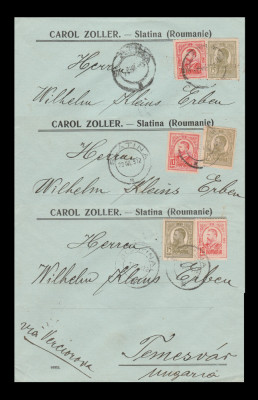 CAROL ZOLLER. — Slatina (Roumanie)
Herren
Wilhelm Kleins Erben
CAROL ZOLLER. — Slatina (Roumanie)
Herren
Wilhelm Kleins Erben
CAROL ZOLLER. — Slatina (Roumanie)
Herren
Wilhelm Kleins Erben
via Verciorova
Temesvár
Ungaria